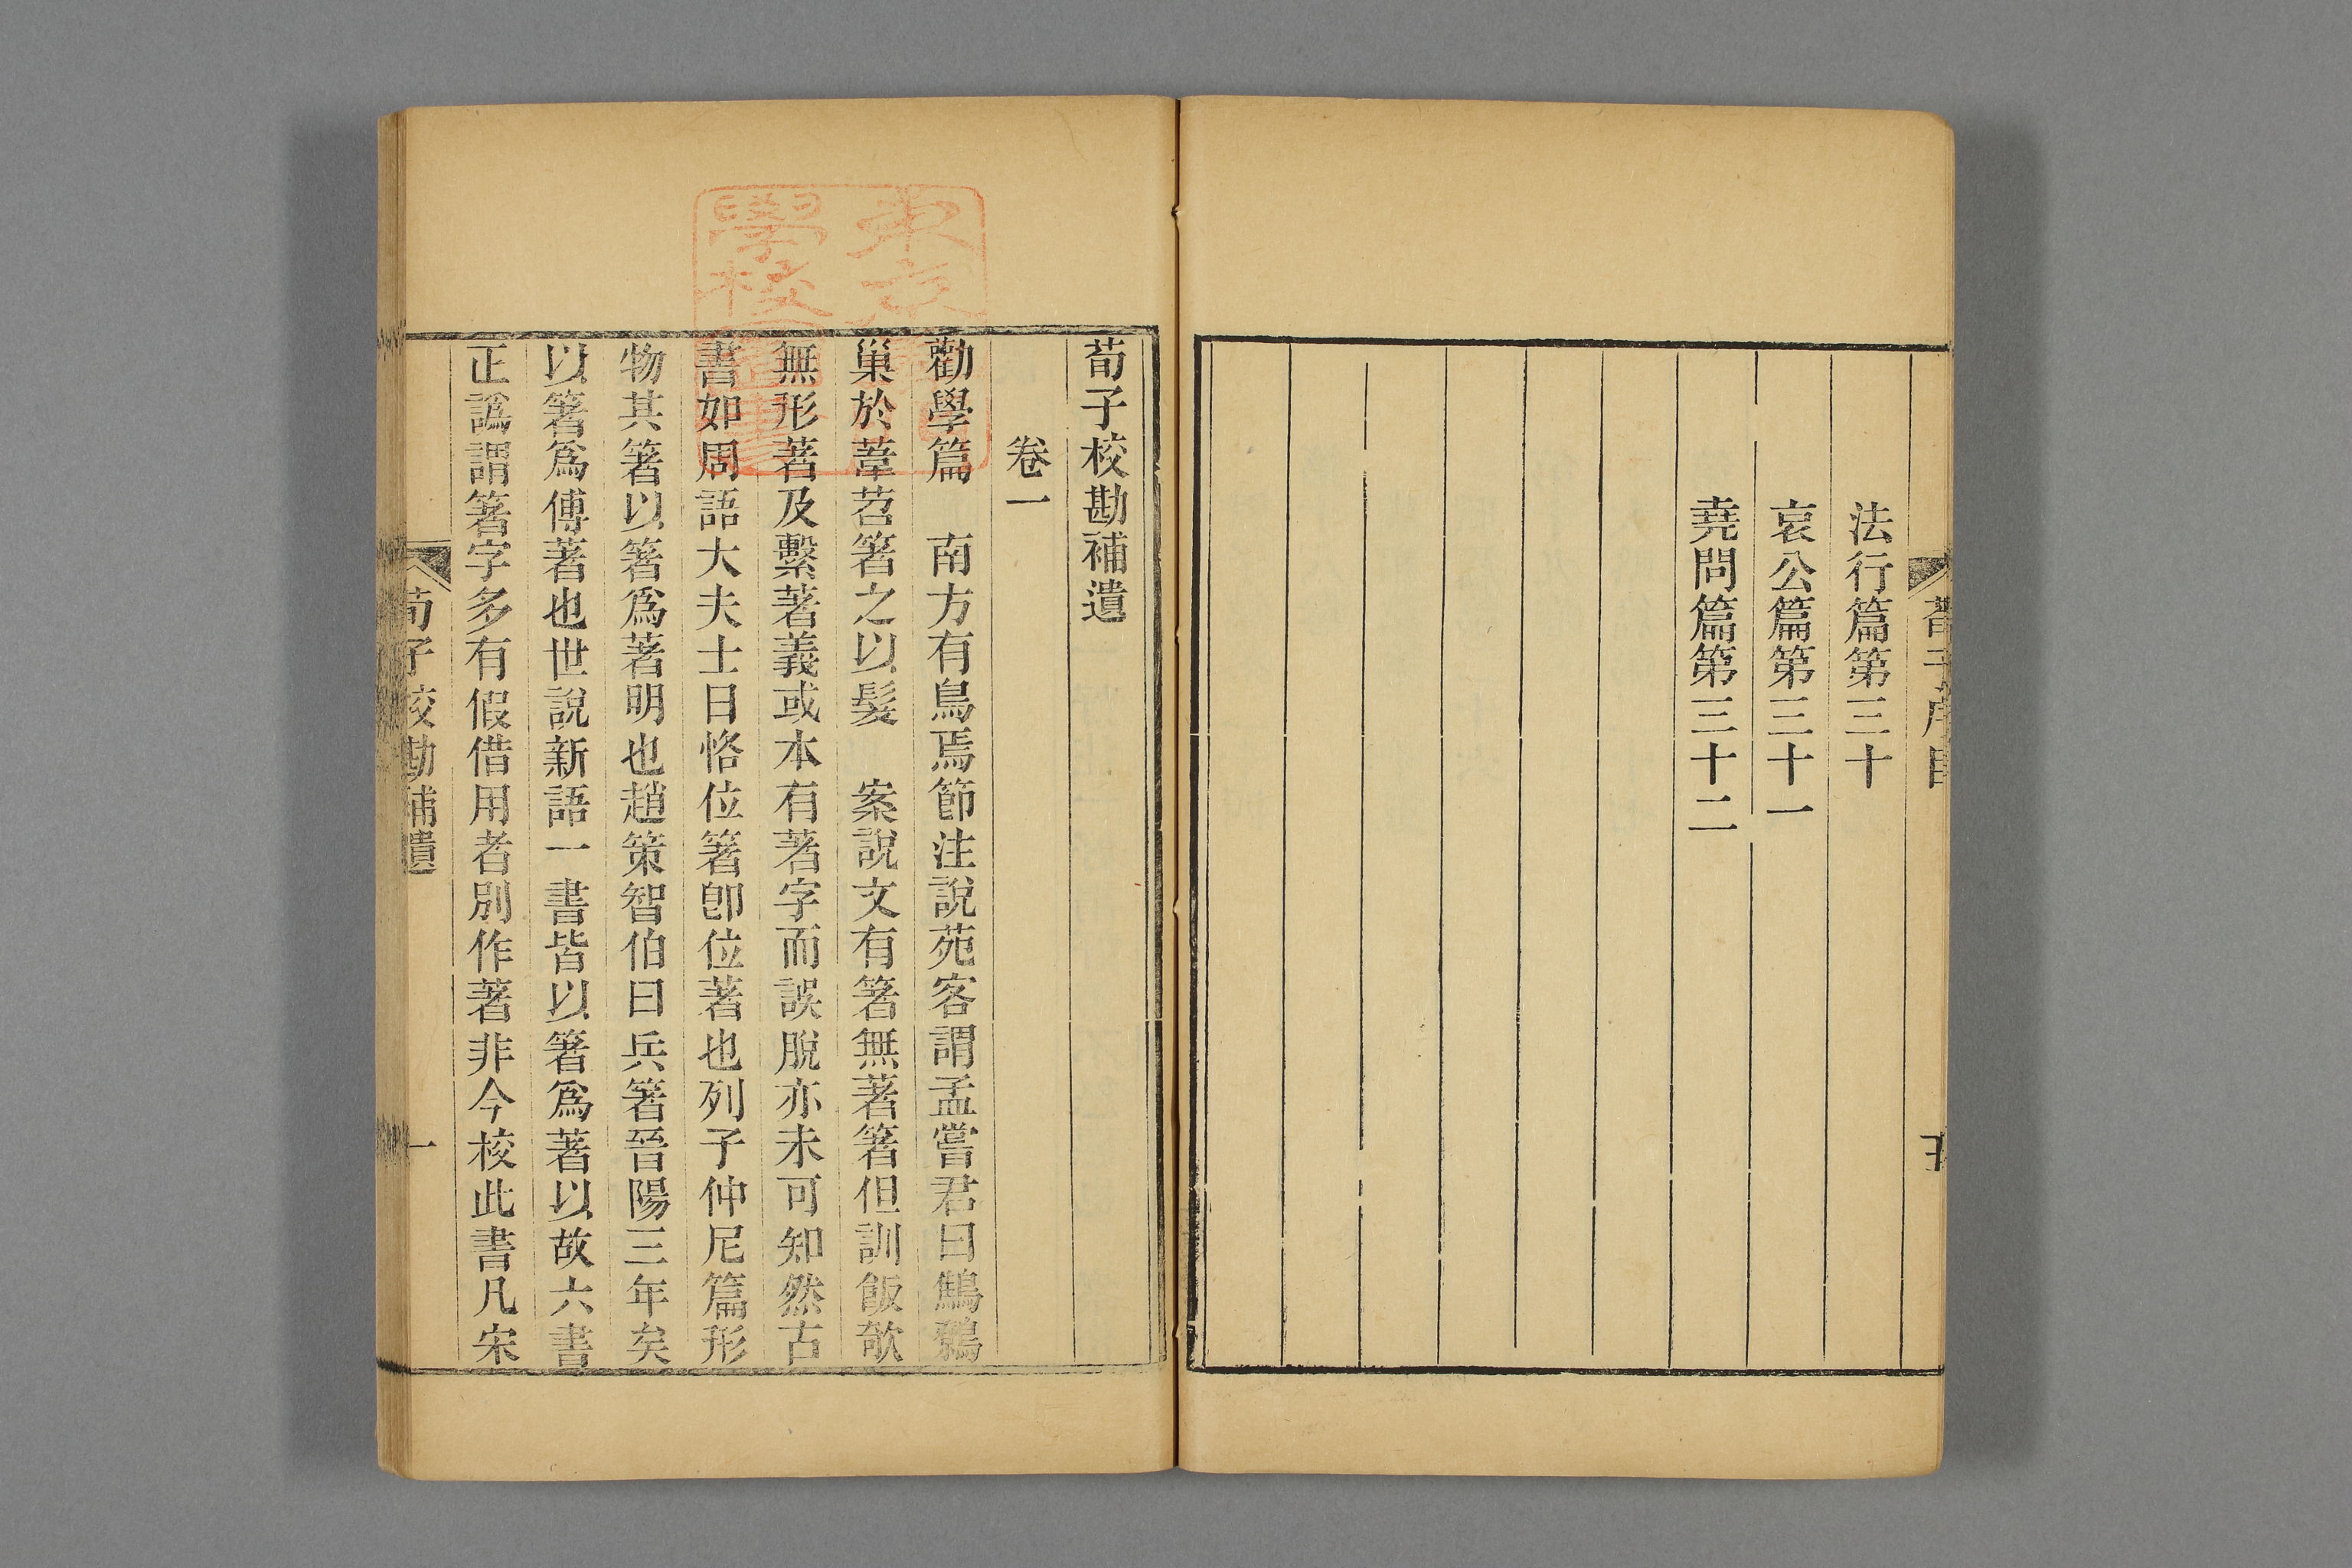 法行篇第三十
哀公篇第三十一
堯問篇第三十二
荀子校勘補遺
卷一
勸學篇　南方有鳥焉節注說苑客謂孟嘗君曰鷦鷯
巢於葦苕箸之以髮　案說文有箸無著箸但訓飯攲
無形著及繫著義或本有著字而誤脫亦未可知然古
書如周語大夫士日恪位箸卽位著也列子仲尼篇形
物其箸以箸爲著明也趙策智伯曰兵箸晉陽三年矣
以箸爲傅著也世說新語一書皆以箸爲著以故六書
正譌謂箸字多有假借用者別作著非今校此書凡宋
荀子校勘補遺
一